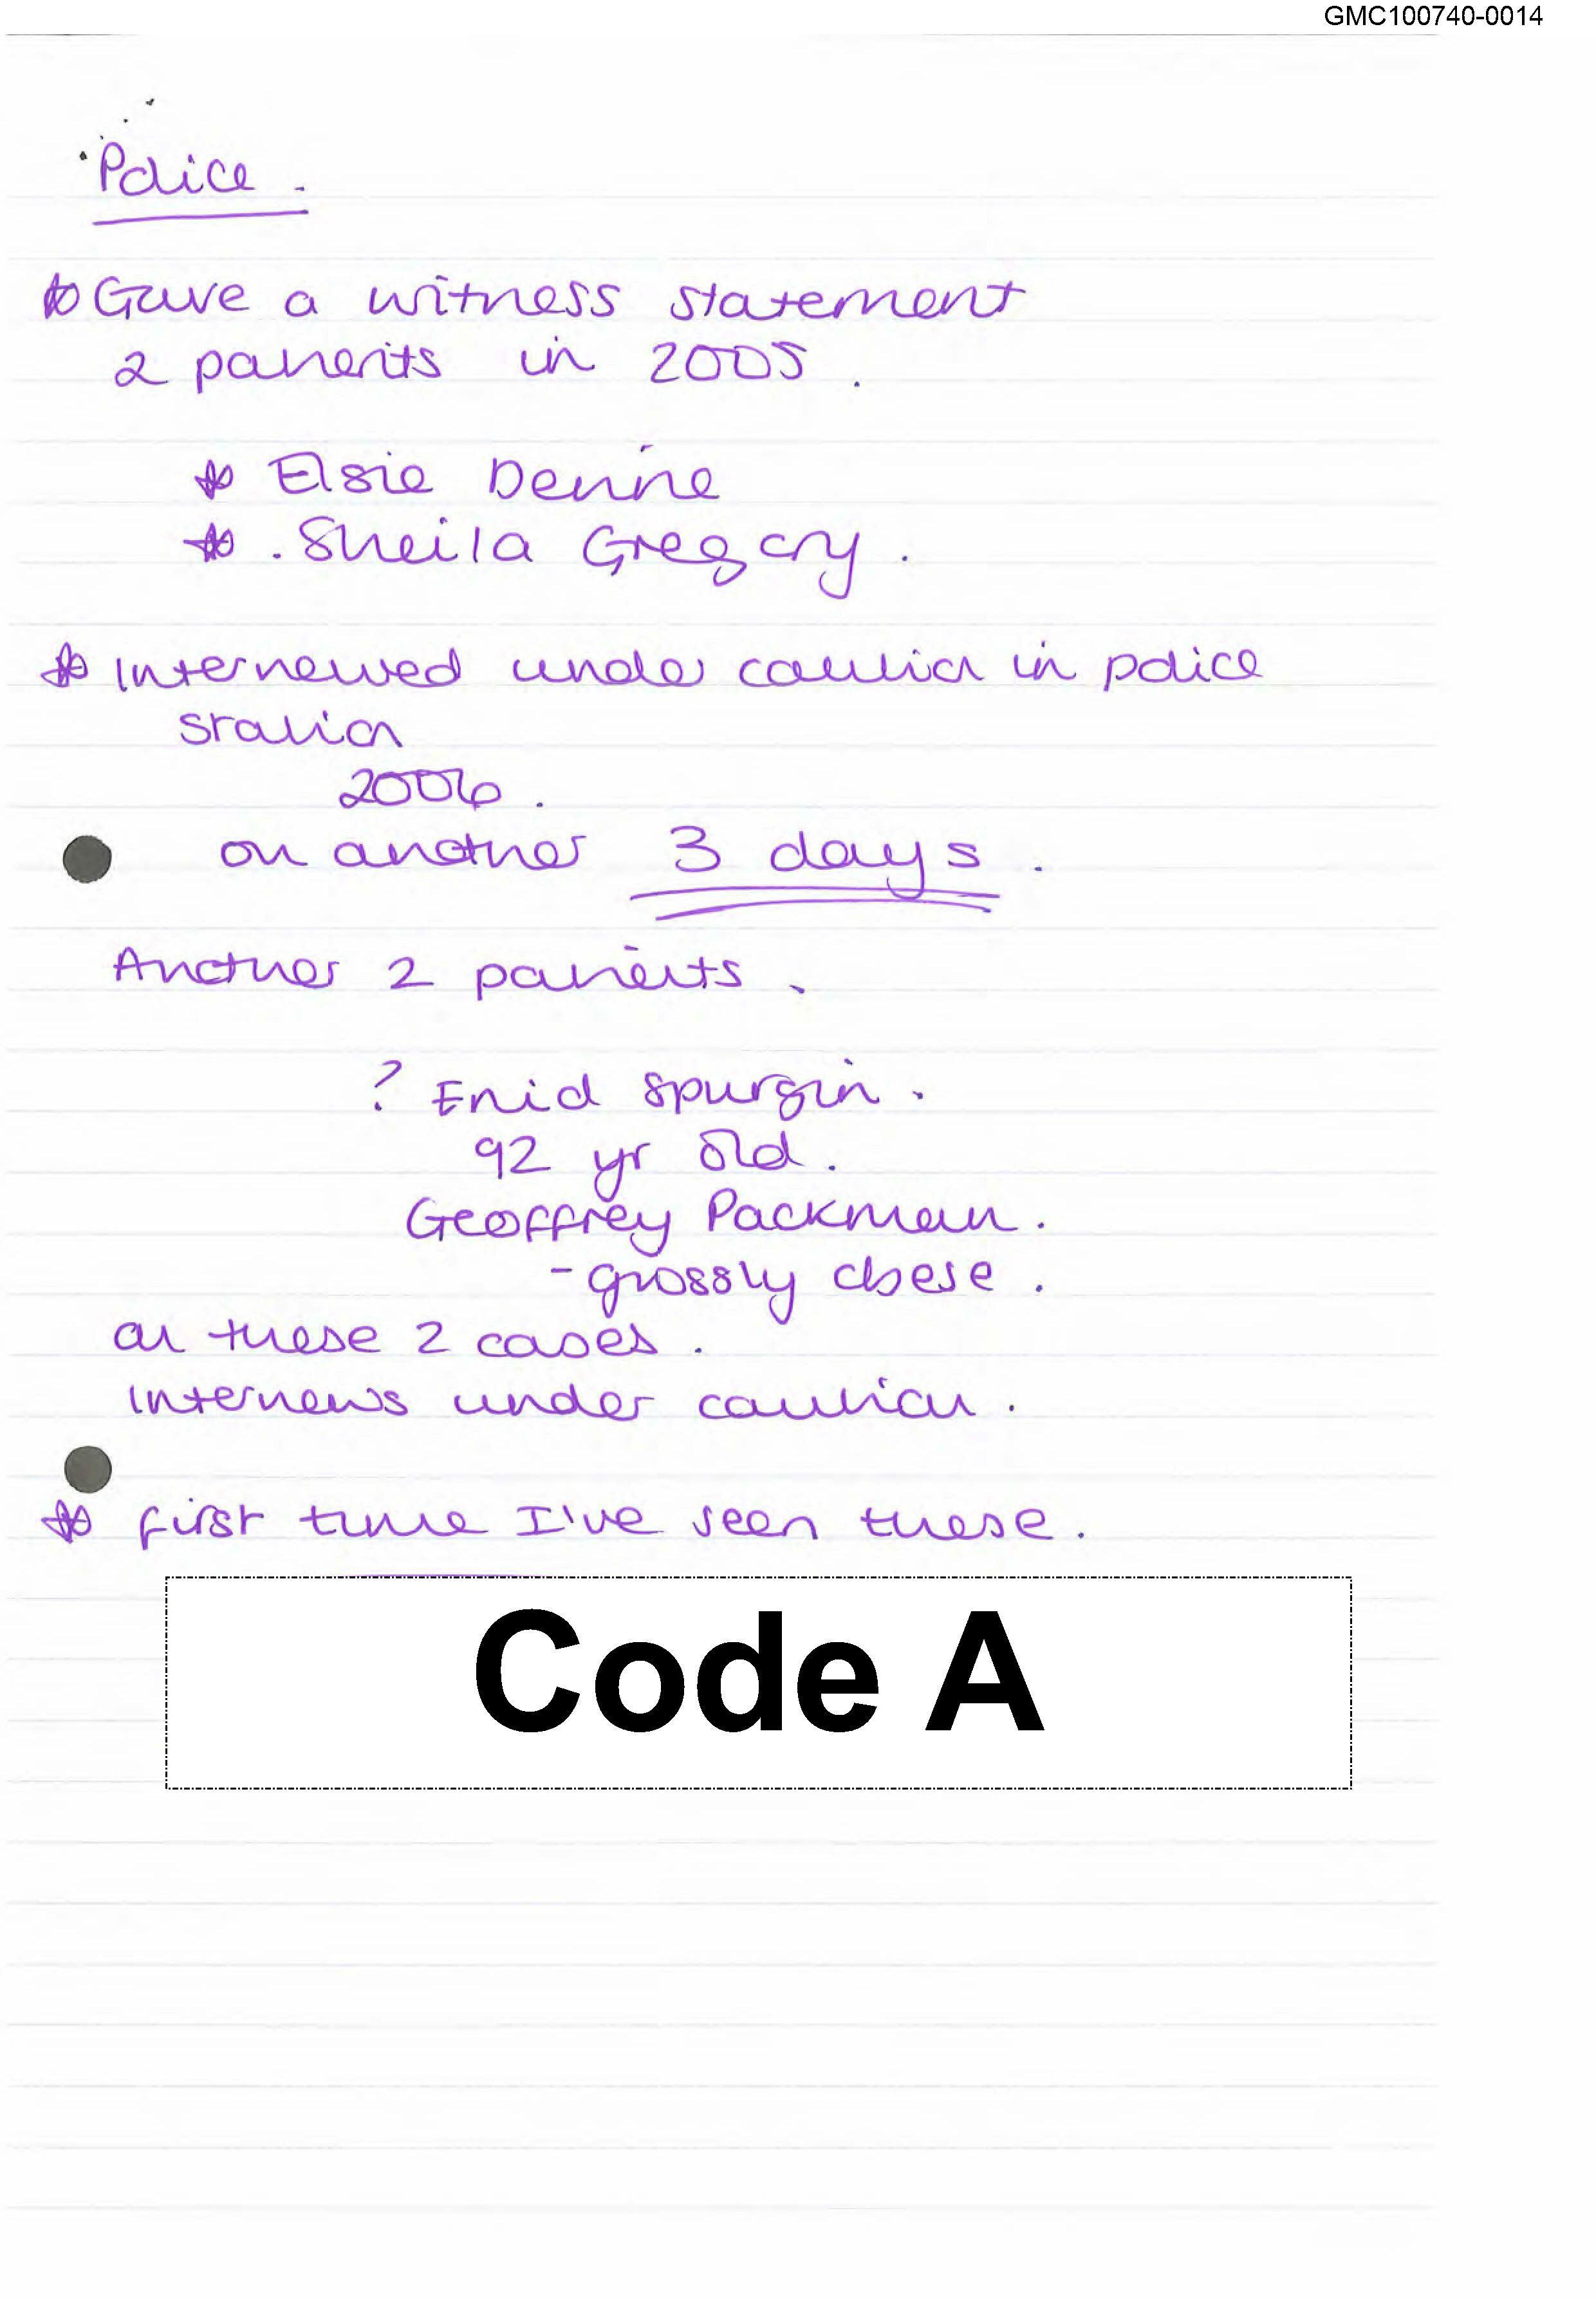 GMC100740-0014
Police.
* Gave a witness statement
2 patients in 2005.
* Elsie Devine
* . Sheila Gregory.
* Interviewed under caution in police
station
2006.
on another 3 days.
Another 2 patients.
? Enid Spurgin.
92 yr old.
Geoffrey Packman.
- grossly obese.
on these 2 cases.
Interviews under caution.
* first time I've seen these.
Code A